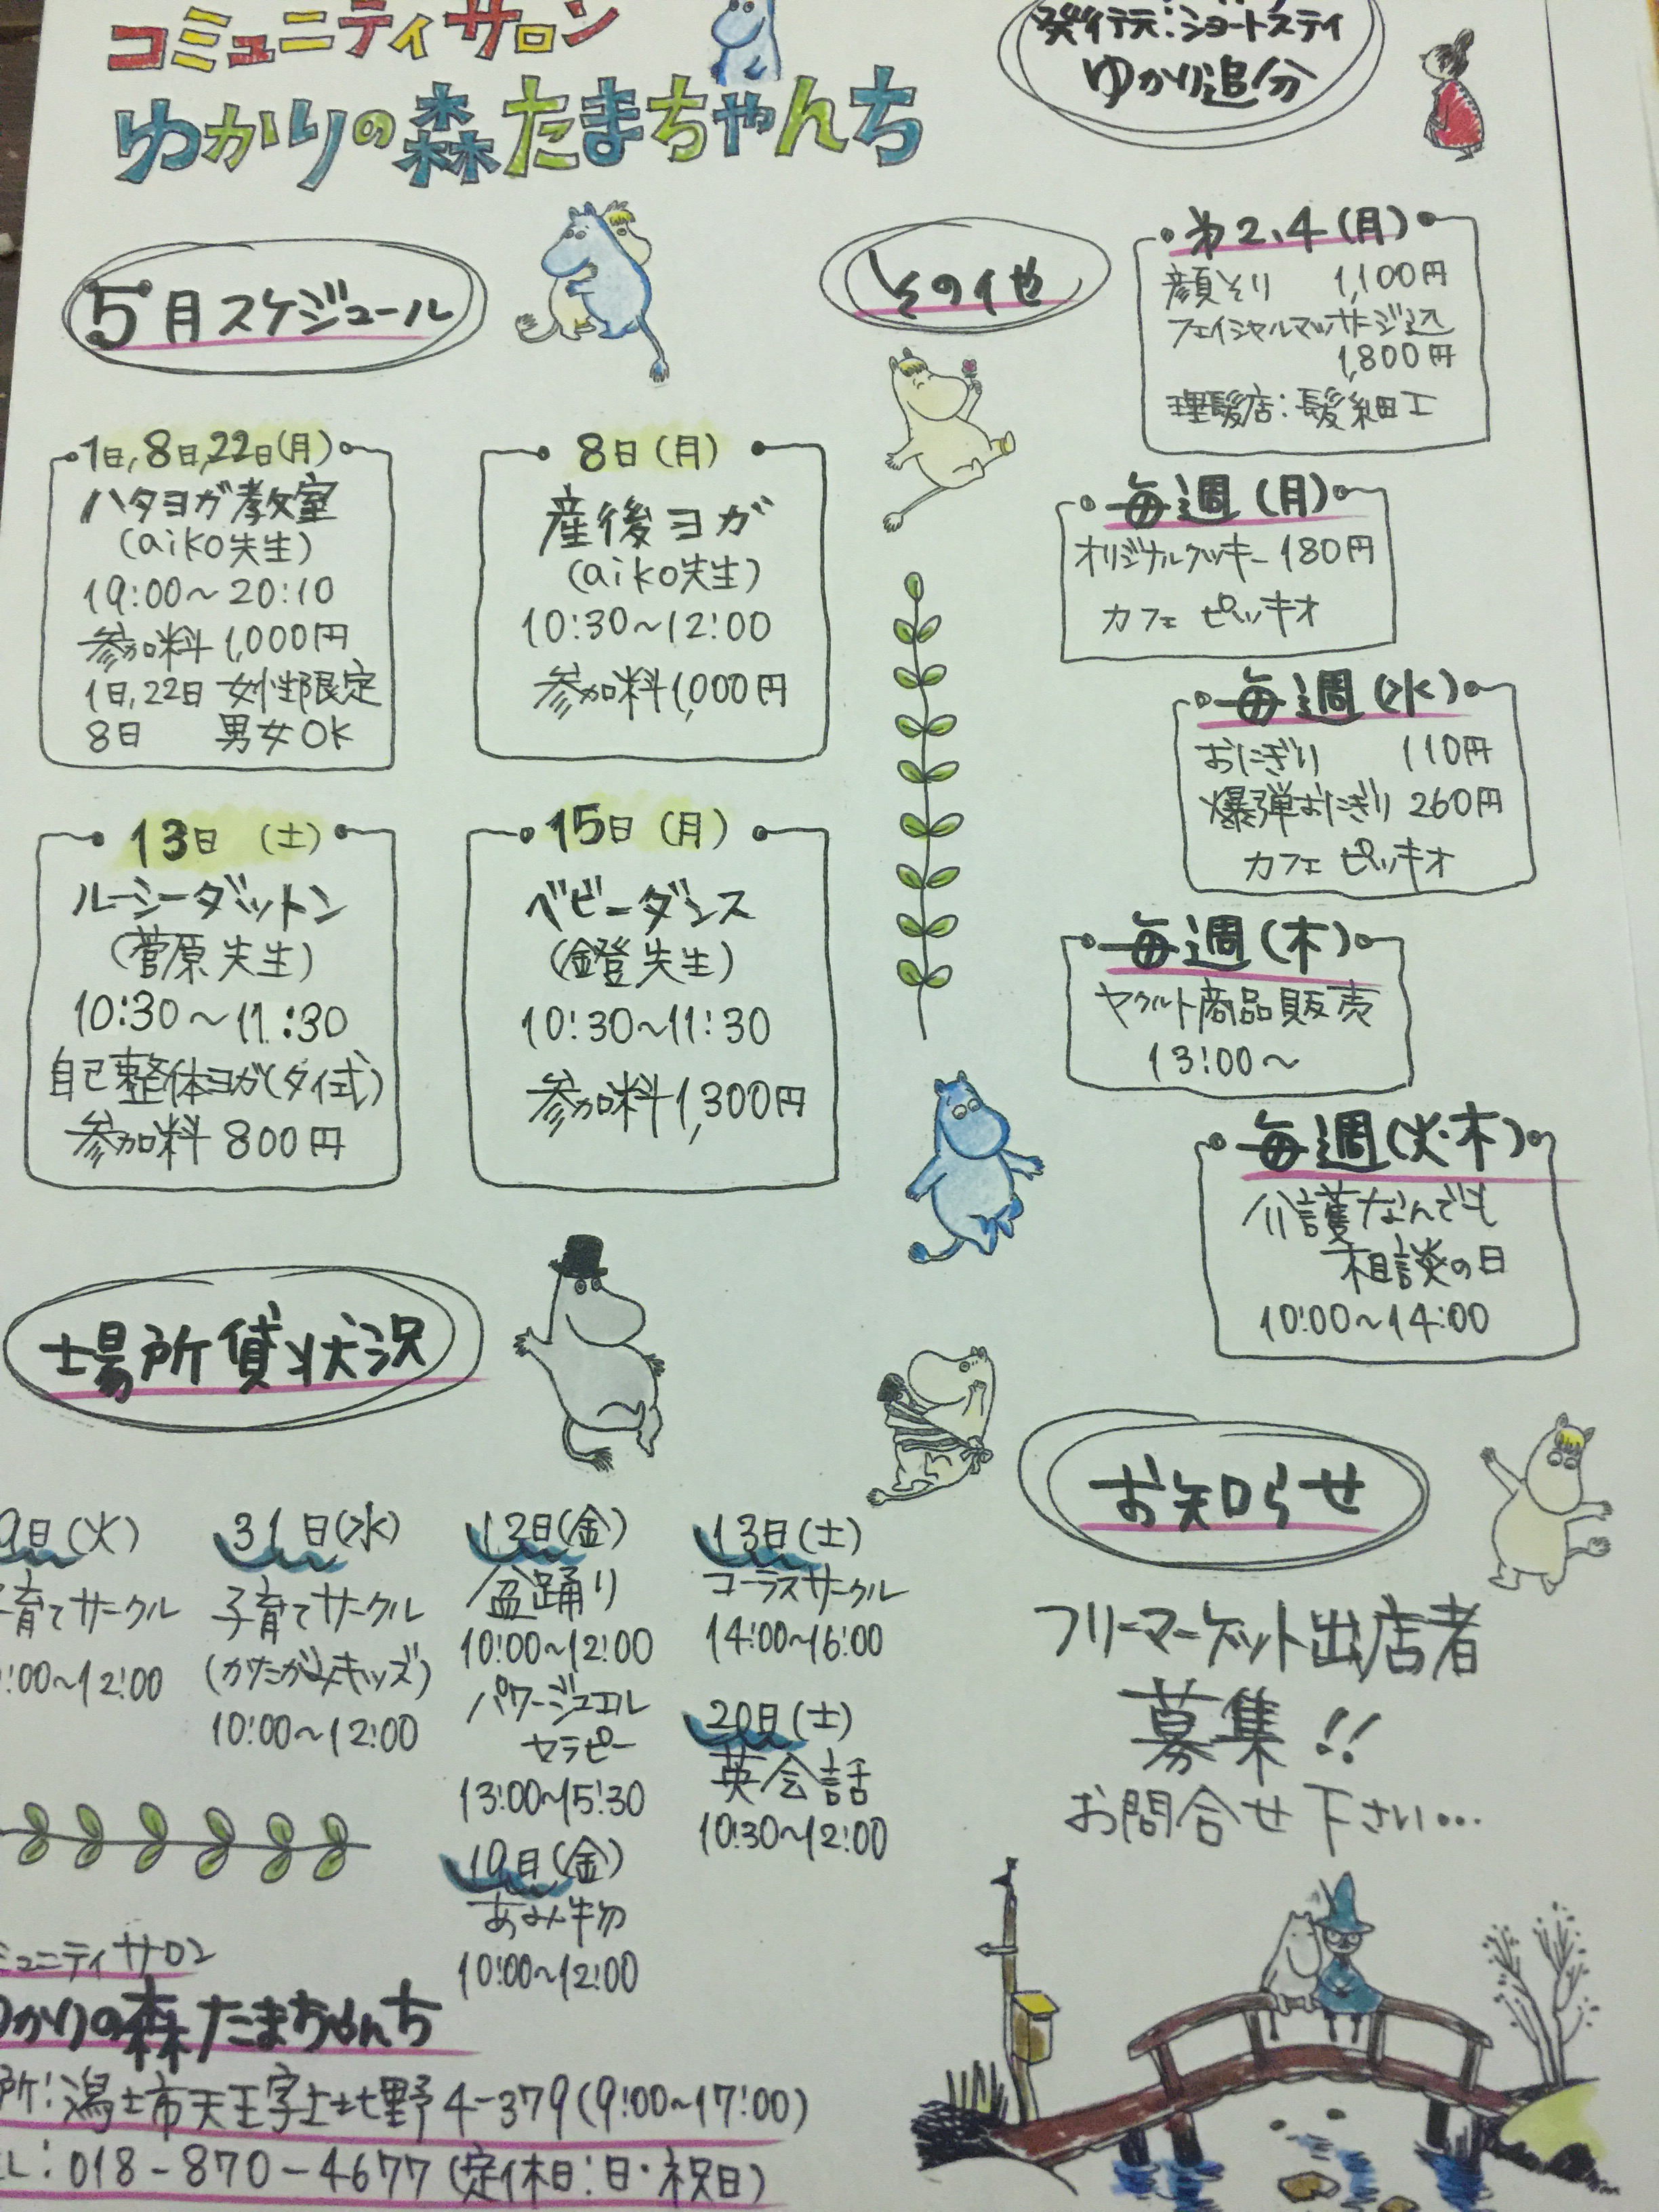 コミュニティサロン
ゆかりの森たまちゃんち
発行元:ショートステイ
ゆかり追分
5月スケジュール
1日,8日,22日(月)
ハタヨガ教室
(aiko先生)
19:00~20:10
参加料1,000円
1日,22日 女性限定
8日 男女OK
8日(月)
産後ヨガ
(aiko先生)
10:30~12:00
参加料1,000円
13日 (土)
ルーシーダットン
(菅原先生)
10:30~11:30
自己整体ヨガ(タイ式)
参加料800円
15日(月)
ベビーダンス
(鐙先生)
10:30~11:30
参加料1,300円
その他
第2、4(月)
顔そり 1,100円
フェイシャルマッサージ込
1,800円
理髪店:髪細工
毎週(月)
オリジナルクッキー 180円
カフェ ピッキオ
毎週(水)
おにぎり 110円
爆弾おにぎり 260円
カフェ ピッキオ
毎週(木)
ヤクルト商品販売
13:00~
毎週(火・木)
介護なんでも
相談の日
10:00~14:00
場所貸状況
9日(火)
育てサークル
:00~12:00
31日(水)
子育てサークル
(かたがみキッズ)
10:00~12:00
12日(金)
盆踊り
10:00~12:00
パワージュエル
セラピー
13:00~15:30
19日(金)
あみ物
10:00~12:00
13日(土)
コーラスサークル
14:00~16:00
20日(土)
英会話
10:30~12:00
お知らせ
フリーマーケット出店者
募集!!
お問合せ下さい…
ミュニティサロン
ゆかりの森たまちゃんち
所:潟上市天王字上北野4-379(9:00~17:00)
EL:018-870-4677(定休日:日・祝日)